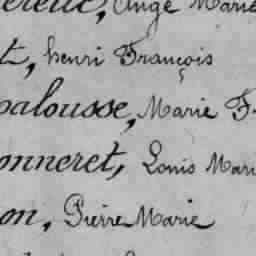 Ange Marie
t, henri François
alousse, Marie F
onneret, Louis Mari
on, Pierre Marie